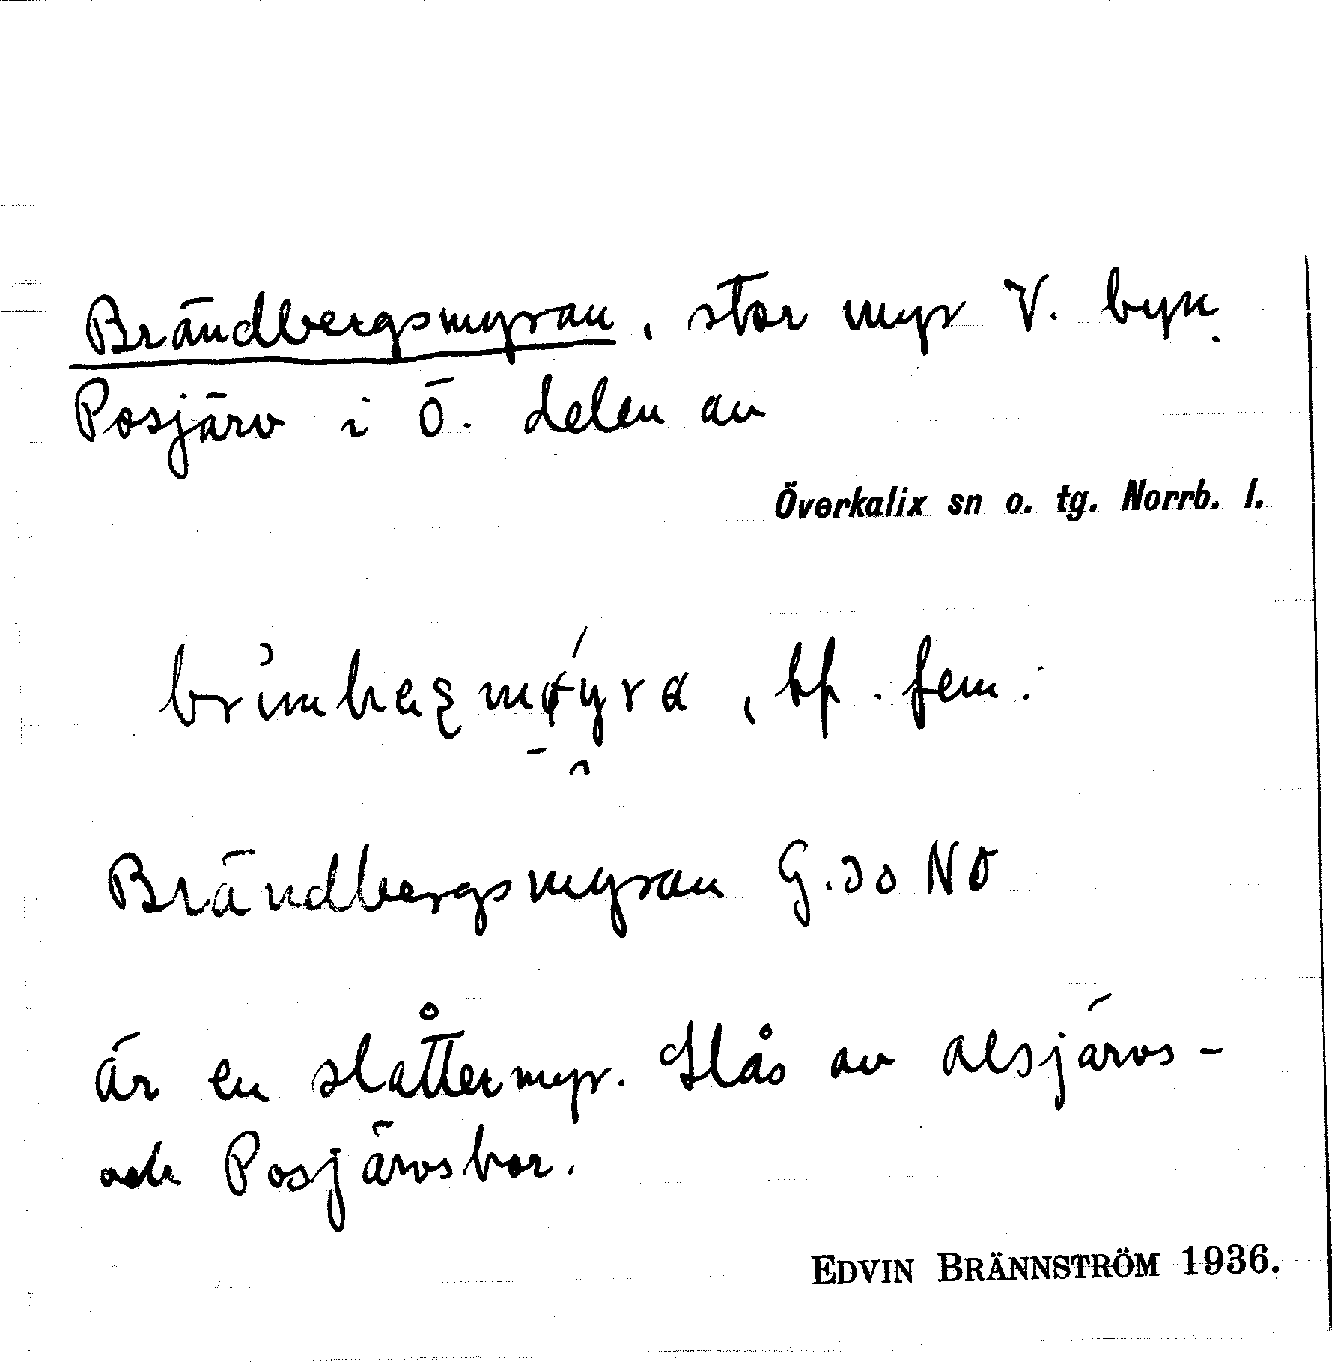 Brändbergsmyran, stor myr V. byn
Posjärv i Ö. delen av
Överkalix sn o. tg. Norrb. l.
bf. fem.
Brändbergsmyran G.do NO
är en slåttermyr. Slås av Alsjärvs-
och Posjärvsbor.
EDVIN BRÄNNSTRÖM 1936.